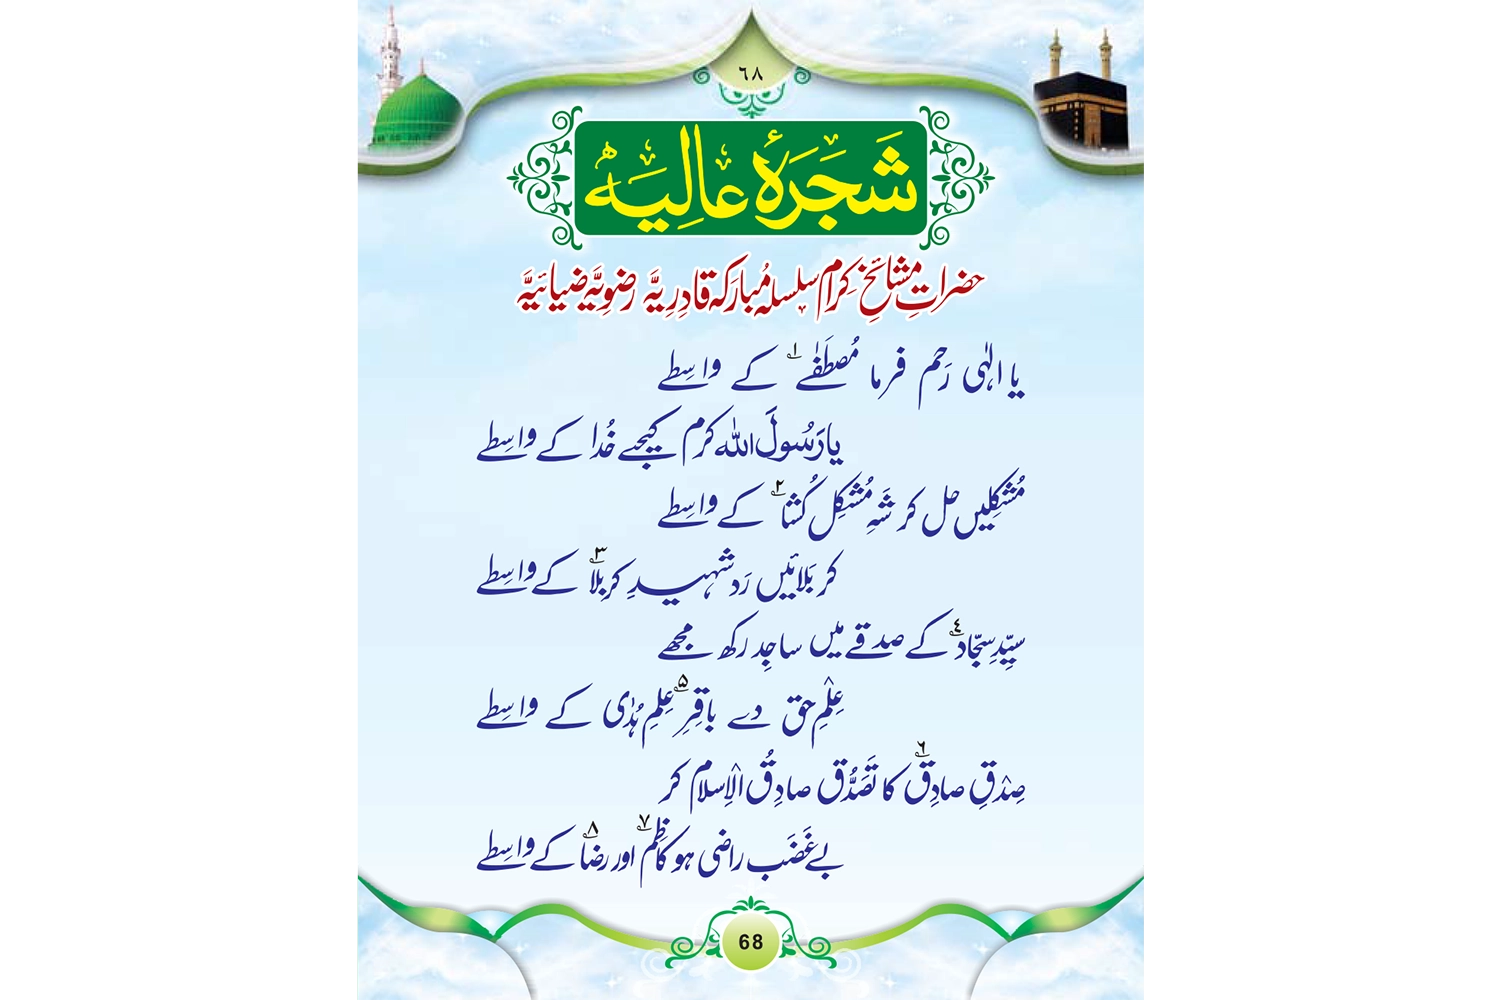 ٦٨
شَجَرَۂ عالِیَہ
حضراتِ مشائخِ کِرام سلسلہ مُبارَکہ قادِرِیَّہ رضوِیَّہ ضیائیَّہ
یا الٰہی رَحم فرما مُصطَفٰے۱ کے واسِطے
یارَسُولَ اللہ کرم کیجیے خُدا کے واسِطے
مُشکِلیں حل کر شَہِ مُشکِل کُشا۲ کے واسِطے
کر بَلائیں رَد شہیدِ کربلا۳ کے واسِطے
سیِّدِ سجّاد۴ کے صدقے میں ساجِد رکھ مجھے
عِلْمِ حق دے باقِرِ۵ عِلمِ ہُدٰی کے واسِطے
صِدْقِ صادِق۶ کا تَصَدُّق صادِقُ الْاِسلام کر
بے غَضَب راضی ہو کاظِم۷ اور رضا۸ کے واسِطے
68